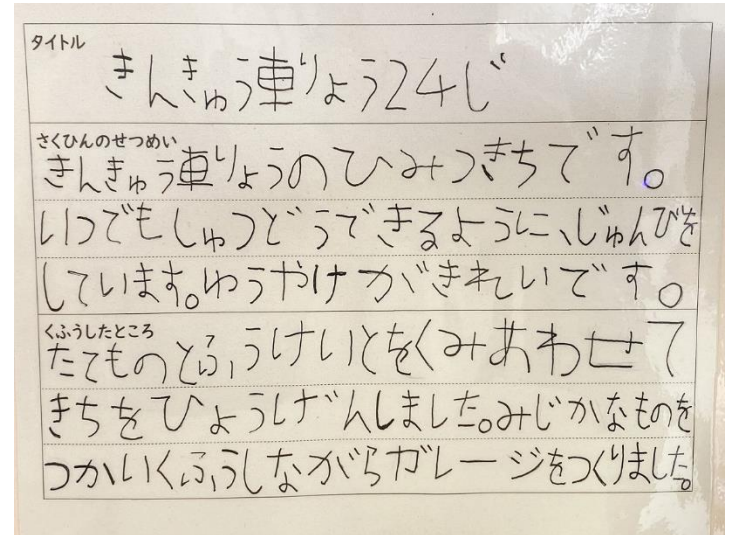 タイトル
きんきゅう車りょう24じ
さくひんのせつめい
きんきゅう車りょうのひみつきちです。
いつでもしゅつどうできるように、じゅんびを
しています。ゆうやけがきれいです。
くふうしたところ
たてものとふうけいとをくみあわせて
きちをひょうげんしました。みじかなものを
つかいくふうしながらガレージをつくりました。